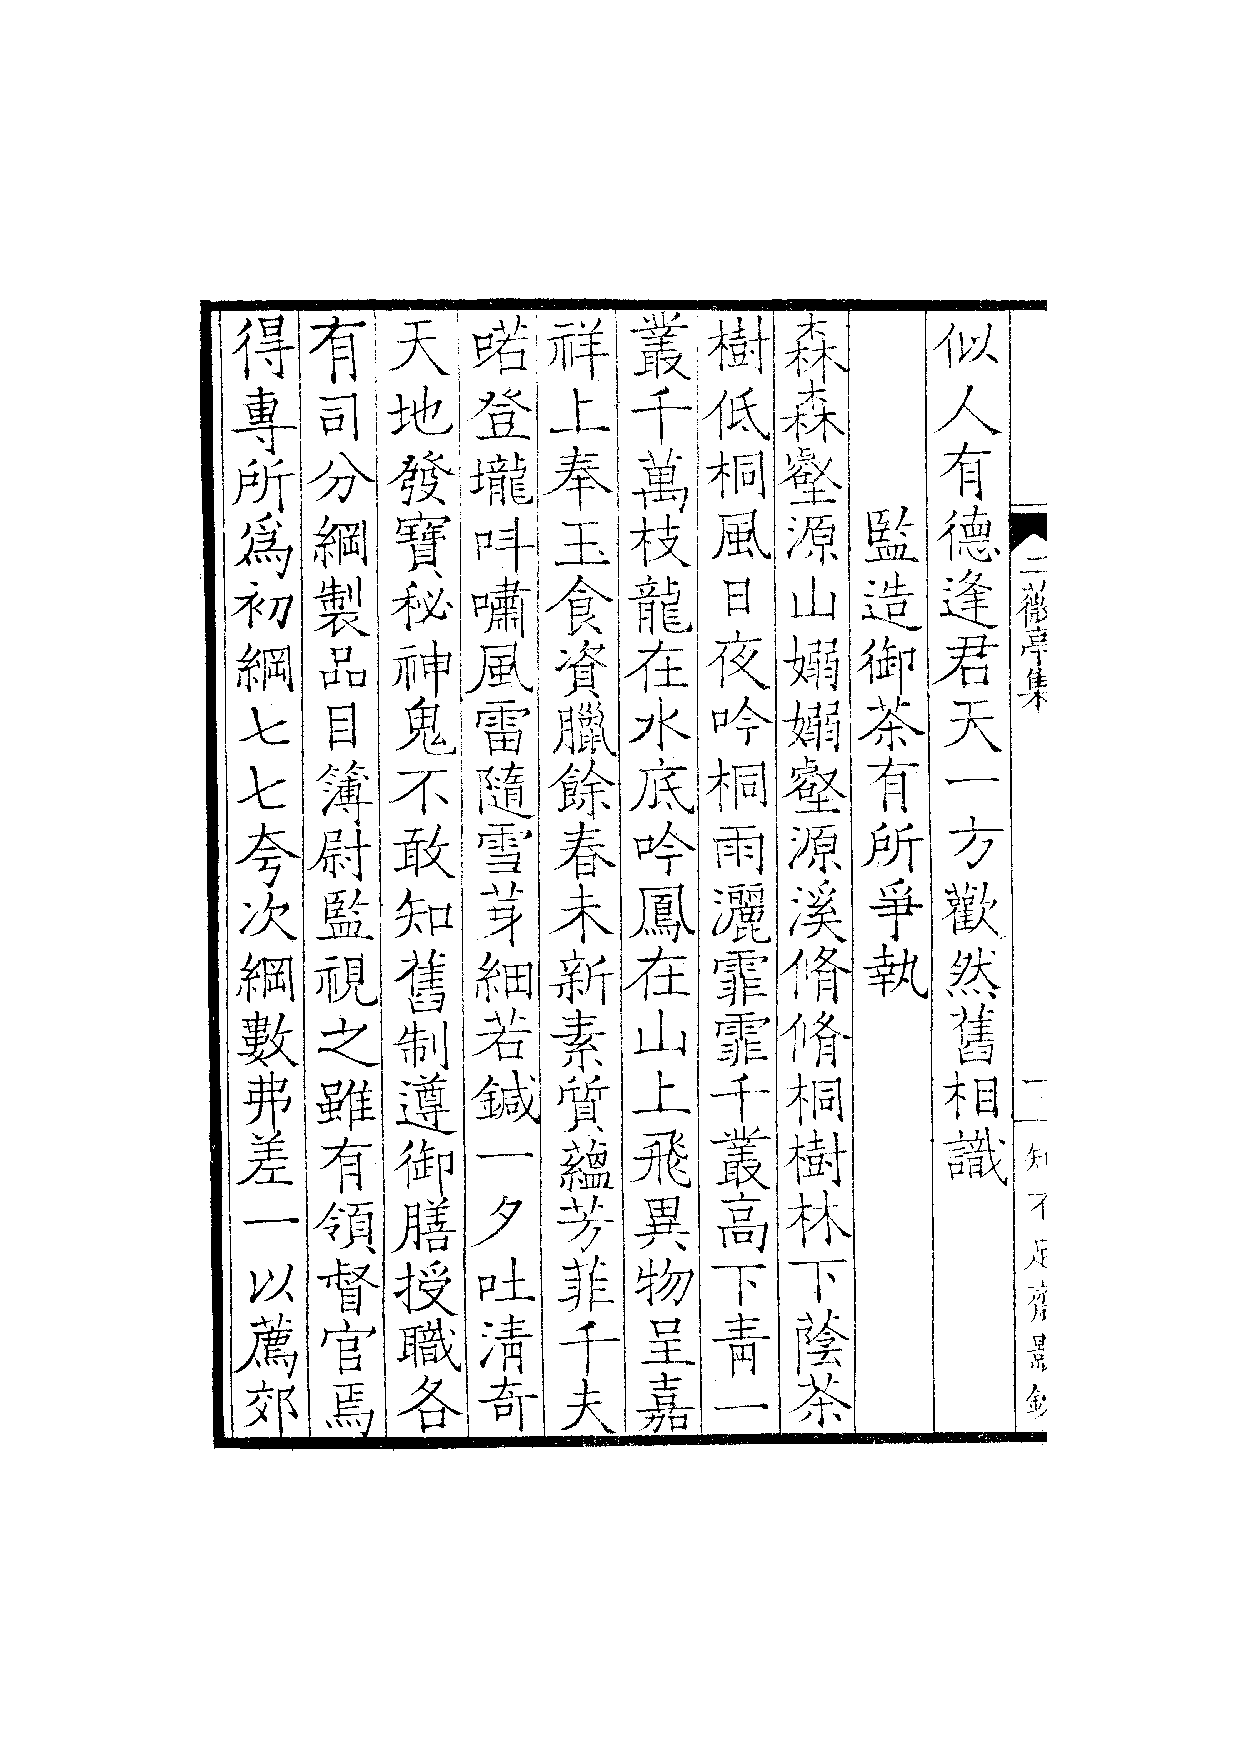 二薇亭集
二
知不足齋景鈔
似人有德逢君天一方歡然舊相識
監造御茶有所爭執
森森壑源山嫋嫋壑源溪脩脩桐樹林下蔭茶
樹低桐風日夜吟桐雨灑霏霏千叢高下青一
叢千萬枝龍在水底吟鳳在山上飛異物呈嘉
祥上奉玉食資臘餘春未新素質蘊芳菲千夫
喏登壠叫嘯風雷隨雪芽細若鍼一夕吐清奇
天地發寶秘神鬼不敢知舊制遵御膳授職各
有司分綱製品目簿尉監視之雖有領督官焉
得專所爲初綱七七夸次綱數弗差一以薦郊